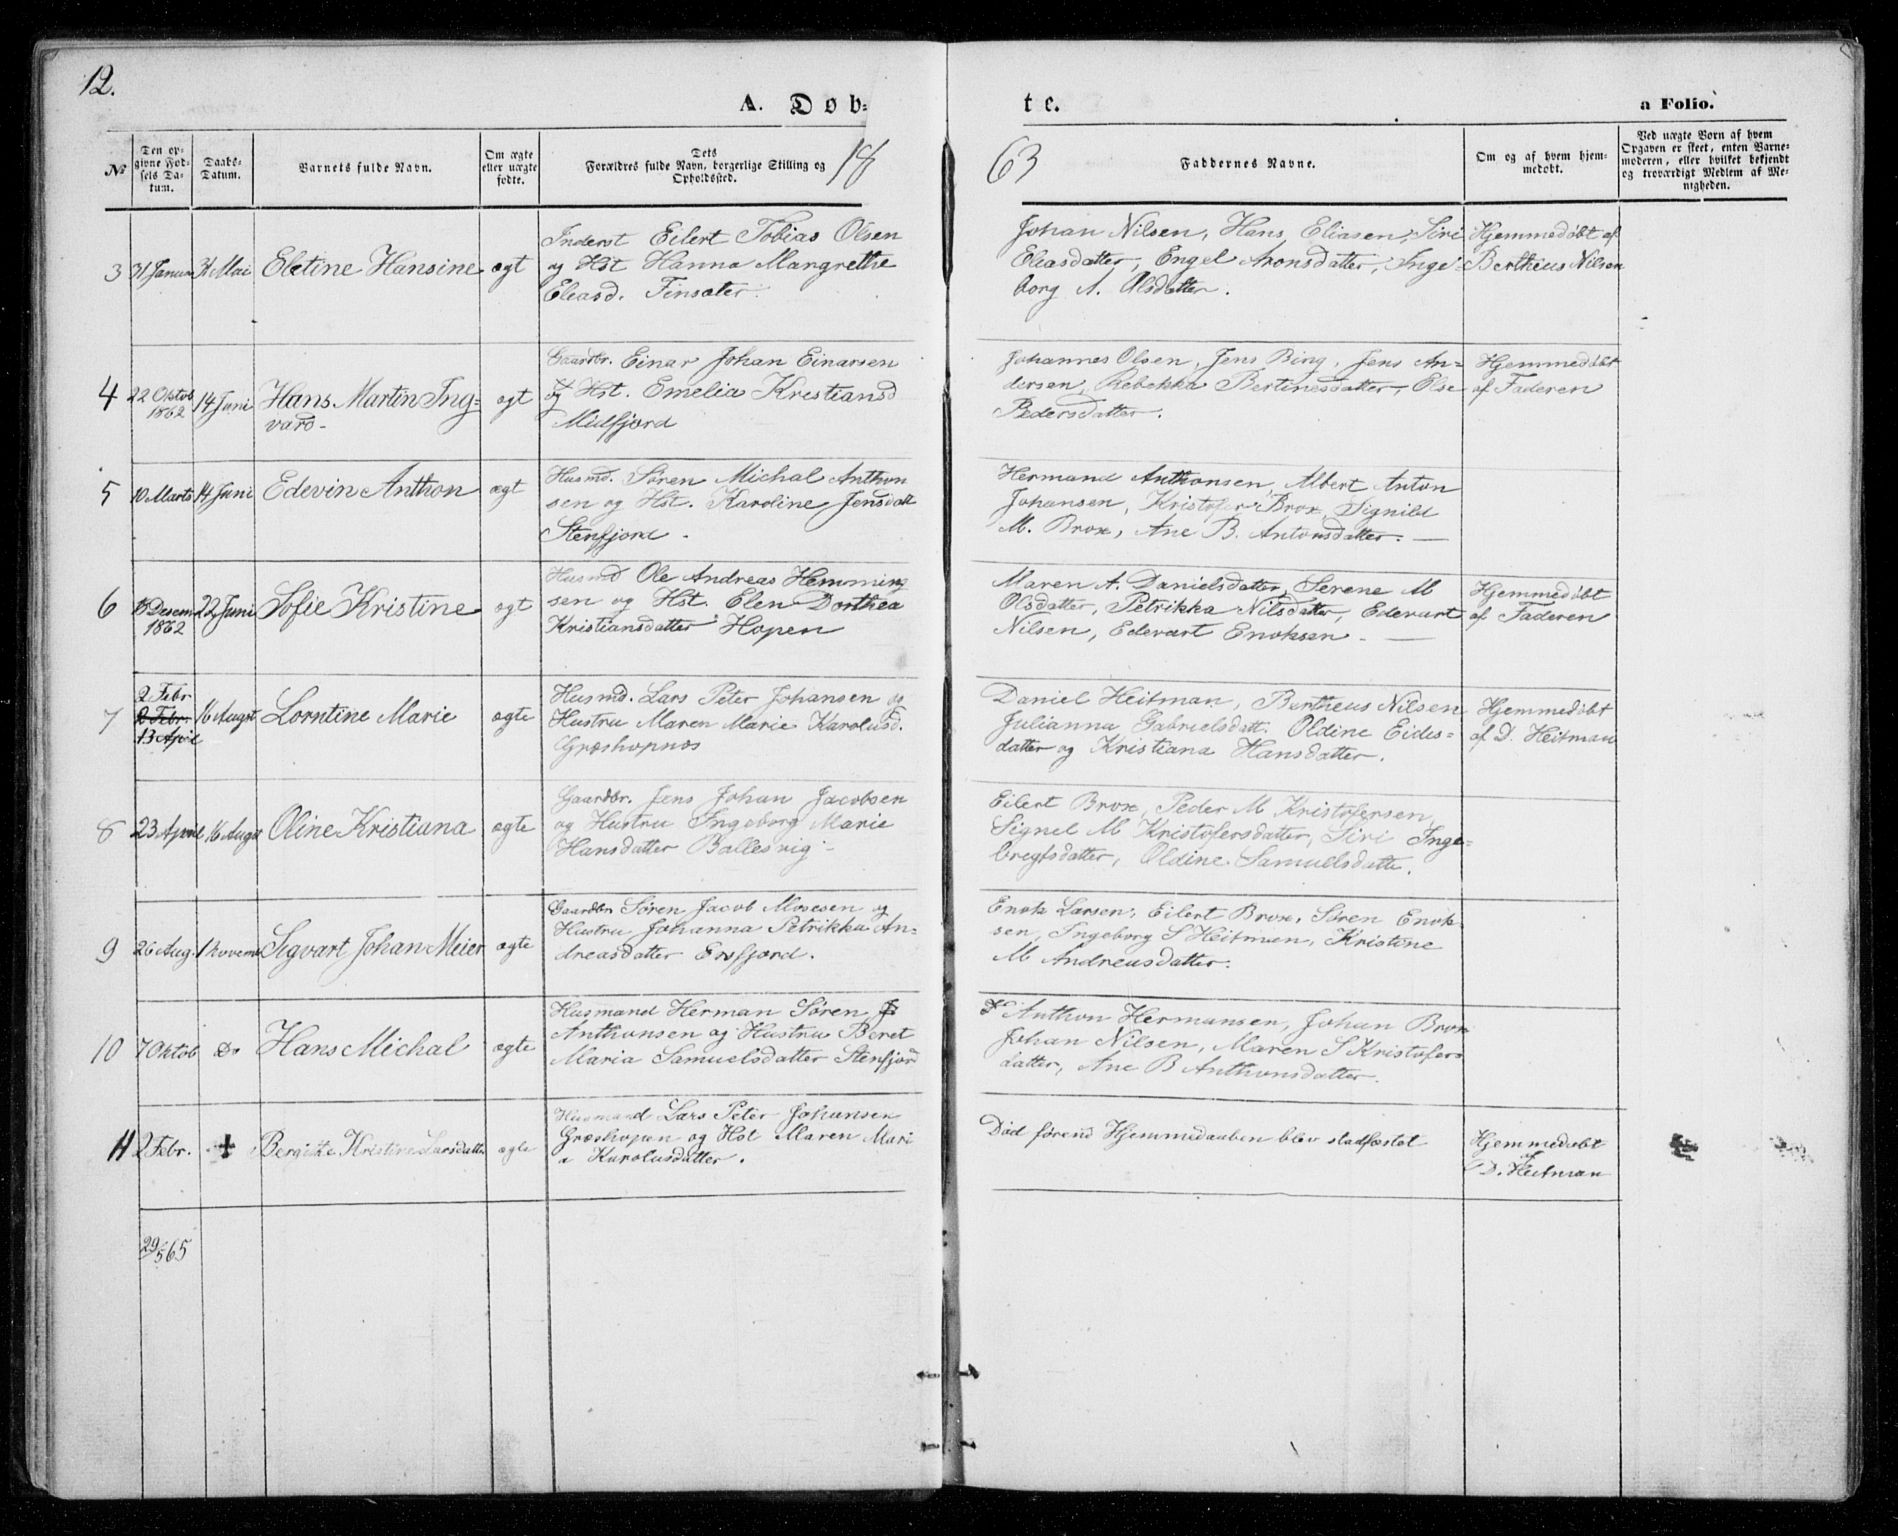 12.
A. Døb-
te.
a Folio.
18
63
No
Den op-
givne Fød-
sels Da-
tum.
Daabs-
Datum.
Barnets fulde Navn.
Om ægte
eller uægte
fødte.
Dets
Forældres fulde Navn, borgerlige Stilling og
Opholdssted.
Faddernes Navne.
Om og af hvem hjem-
medøbt.
Ved uægte Børn af hvem
Opgaven er skeet, enten Barne-
moderen, eller hvilket bekjendt
og troværdigt Medlem af Me-
nigheden.
3 31 Januar 31 Mai Eletine Hansine ægt
Inderst Eilert Tobias Olsen
og Hst Hanna Margrethe
Eleasd. Finsæter.
Johan Nilsen, Hans Eliasen, Siri
Eleasdatter, Engel Aronsdatter, Inge-
borg A. Olsdatter.
Hjemmedøbt af
Bertheus Nilsen
4 22 Oktob 1862 14 Juni Hans Martin Ing-
vard-
ægt
Gaardbr. Einar Johan Einarsen
og Hst. Emelia Kristiansd
Midfjord
Johannes Olsen, Jens Bing, Jens An-
dersen, Rebekka Bertinesdatter, Else
Pedersdatter.
Hjemmedøbt
af Faderen
5 10 Marts 14 Juni Edevin Anthon ægt
Husmd. Søren Michal Anthon
sen og Hst. Karoline Jensdatt
Stenfjord.
Hermand Anthonsen, Albert Anton
Johansen, Kristofer Brox, Signild
M. Brox, Ane B. Antonsdatter.
6 15 Desem 1862 22 Juni Sofie Kristine ægt
Husmd Ole Andreas Hemming
sen og Hst. Elen Dorthea
Kristiansdatter Hopen
Maren A. Danielsdatter, Serene M
Olsdatter, Petrikka Nilsdatter, Edevart
Nilsen, Edevart Enoksen.
Hjemmedøbt
af Faderen
7 2 Febr.
2 Febr.
13 April
16 Augst Lorntine Marie ægte
Husmd. Lars Peter Johansen og
Hustru Maren Marie Karolusd.
Græshopnæs
Daniel Heitman, Bertheus Nilsen
Julianna Gabrielsdatt. Oldine Eides-
datter og Kristiana Hansdatter.
Hjemmedøbt
af D. Heitman
8 23 April 16 Augst Oline Kristiana ægte
Gaardbr. Jens Johan Jacobsen
og Hustru Ingeborg Marie
Hansdatter Ballesvig
Eilert Brox, Peder M Kristofersen,
Signel M Kristofersdatter, Siri Inge-
bregtsdatter, Oldine Samuelsdatte.
9 26 Aug. 1 Novemb Sigvart Johan Meier ægte
Gaardbr Søren Jacob Mosesen og
Hustru Johanna Petrikka An-
dreasdatter Ersfjord.
Enok Larsen, Eilert Brox, Søren Enok-
sen, Ingeborg S Heitman, Kristine
M Andreasdatter.
10 7 Oktob Do Hans Michal ægte
Husmand Herman Søren
Anthonsen og Hustru Beret
Maria Samuelsdatter Stenfjord
Anthon Hermansen, Johan Brox
Johan Nilsen, Maren S Kristofers
datter, Ane B Anthonsdatter.
11 2 Febr. Bergitte Kristine Larsdatt. ægte
Husmand Lars Peter Johansen
Græshopen og Hst Maren Mari
a Karolusdatter.
Død førend Hjemmedaaben blev stadfæstet
Hjemmedøbt
af
D. Heitman
29/5 65